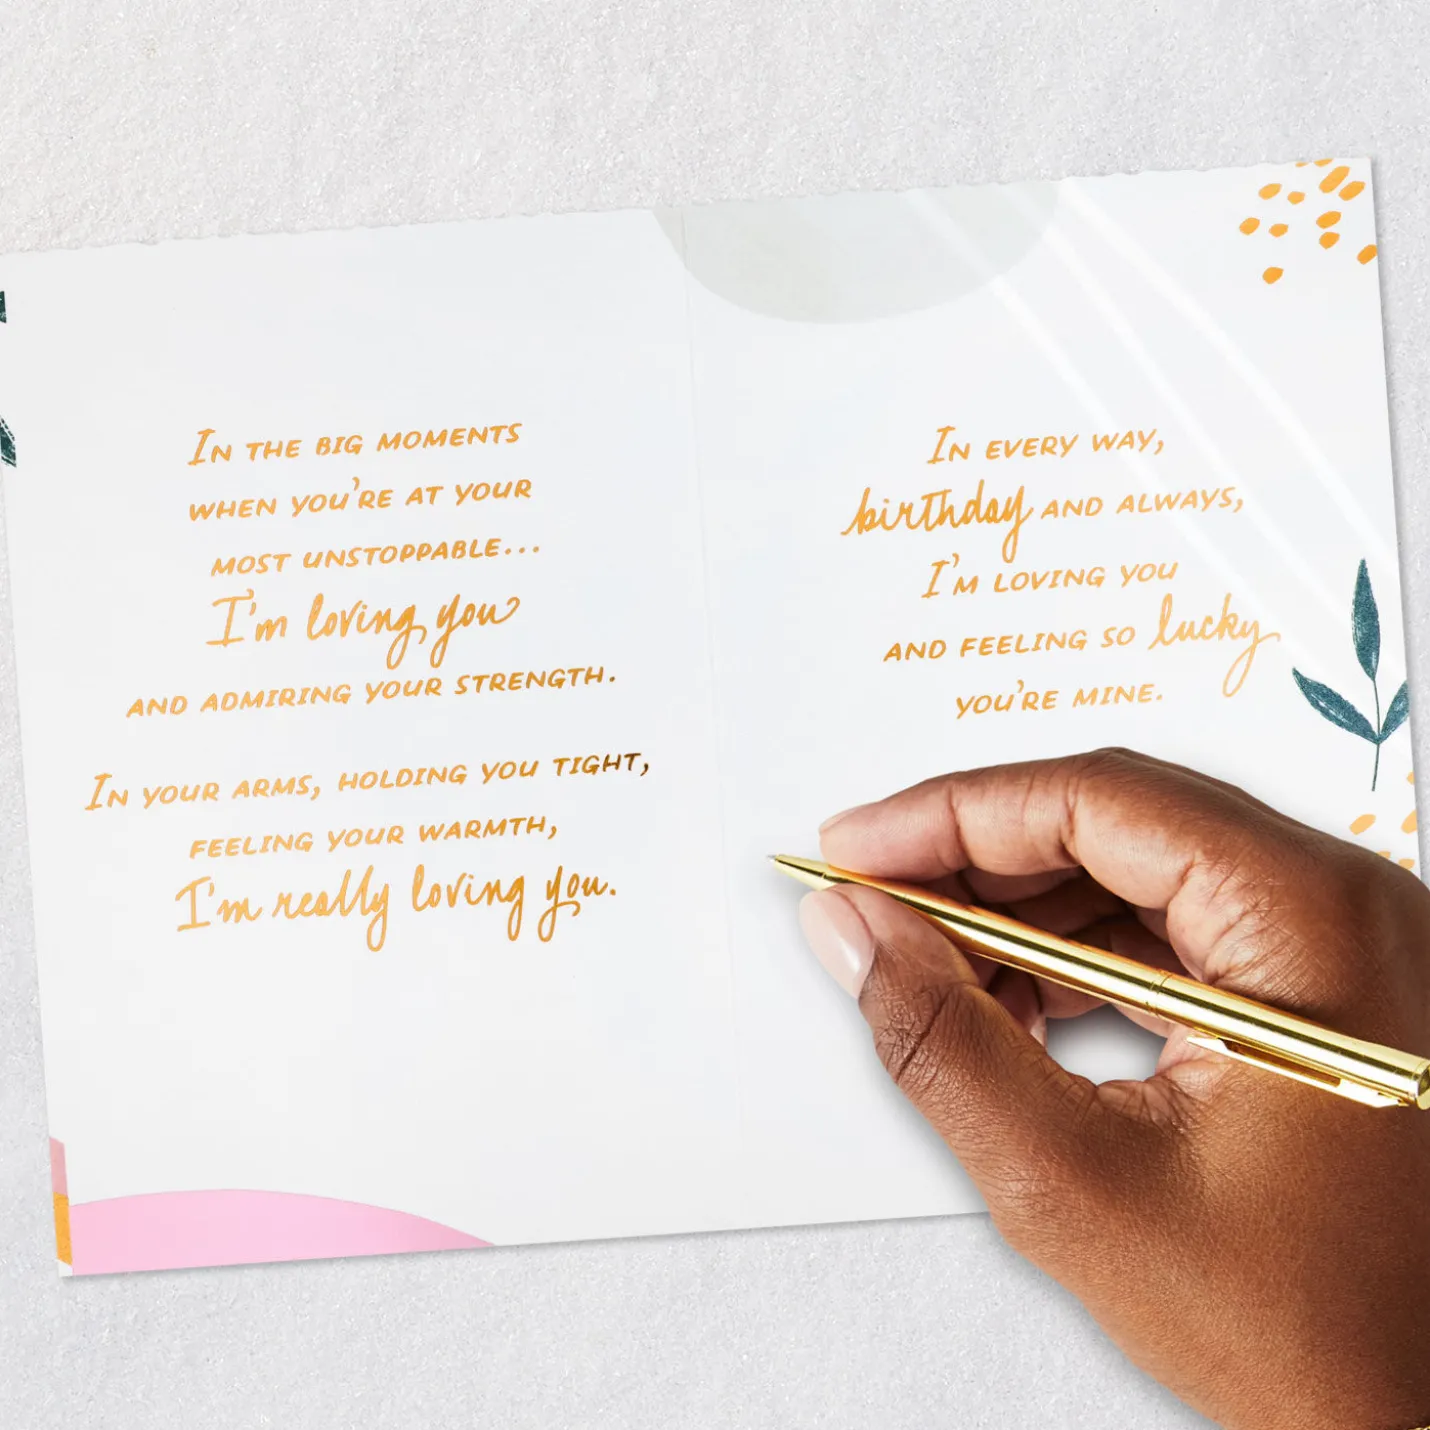 In the big moments
when you're at your
most unstoppable...
I'm loving you
and admiring your strength.
In your arms, holding you tight,
feeling your warmth,
I'm really loving you.
In every way,
birthday and always,
I'm loving you
and feeling so lucky
you're mine.